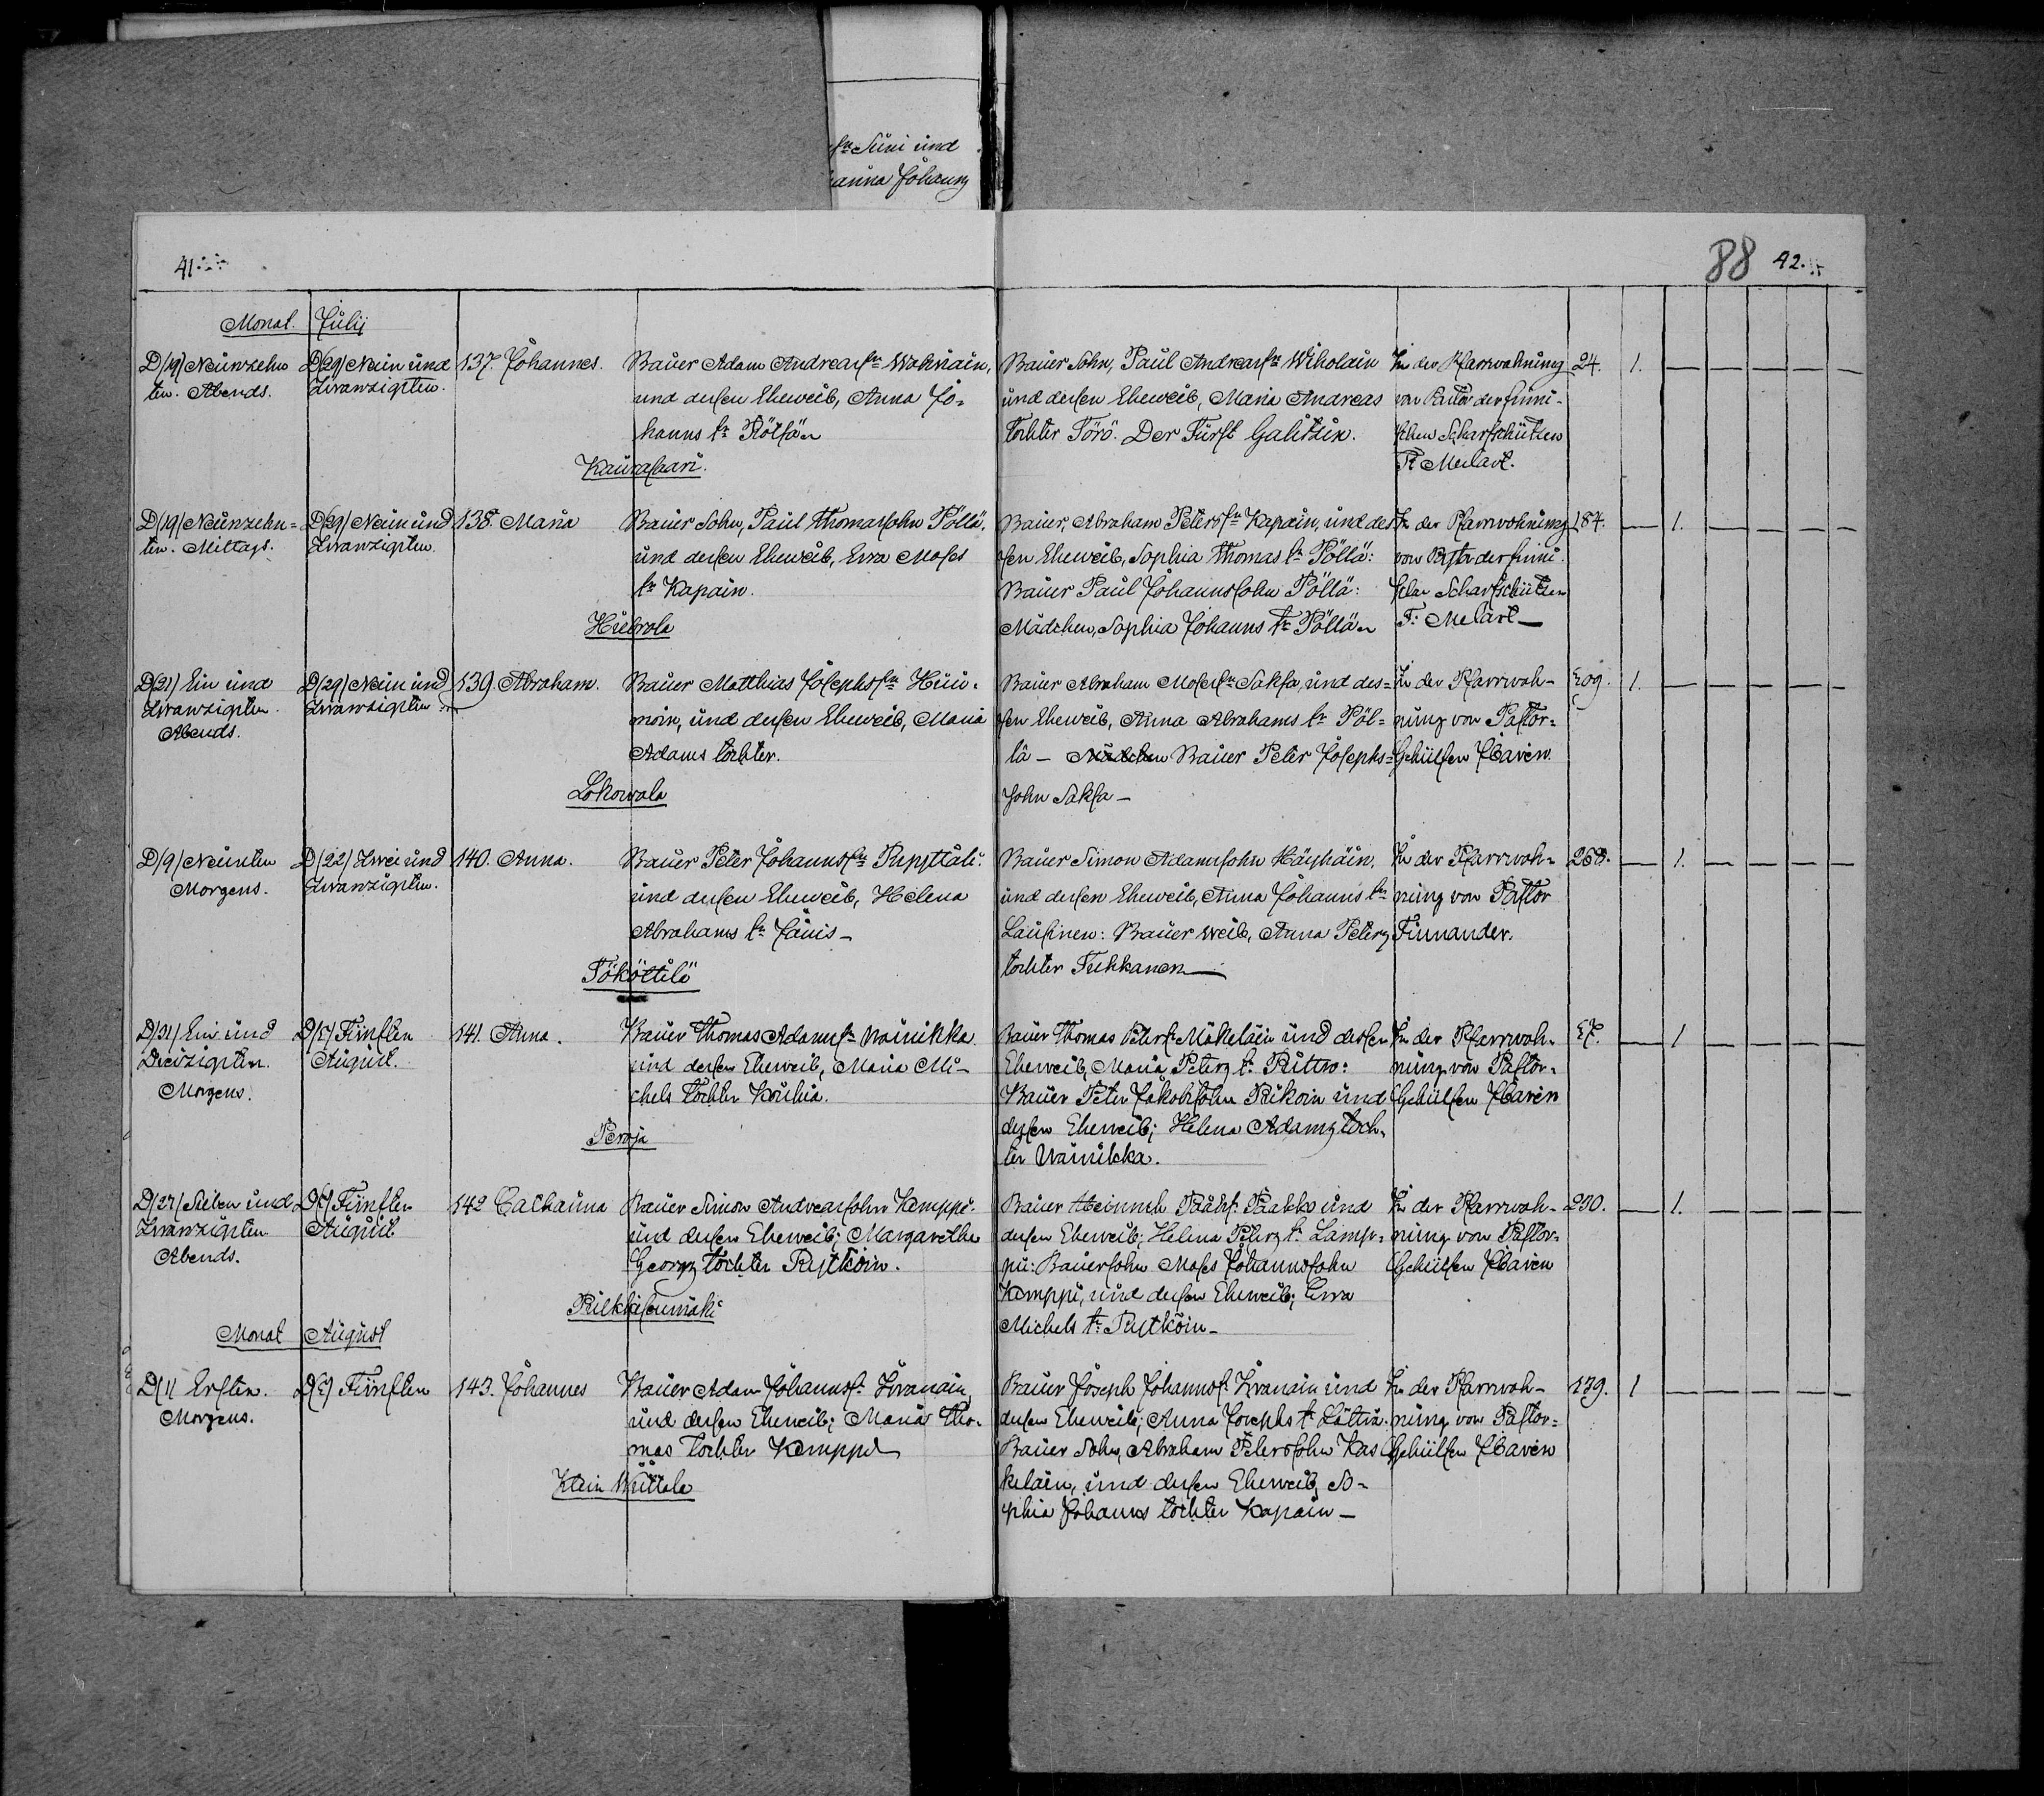 sn Süni und
anna Johann
41.
88 42.
Monat. Julij
D/19/ Neunzehn
ten. Abends.
D/29/ Neun und
Zwanzigsten.
137. Johannes.
Bauer Adam Andreassn
und dessen Eheweib, Anna Jo-
hanns tr
Kaurasaari.
Bauer Sohn, Paul Andreassn Wiholain
und dessen Eheweib, Maria Andreas
tochter Törö. Der Fürst Galitzin.
In der Pfarrwohnung
von Pastor der finni-
schen Scharfschützen
Fr Melart.
24. 1. — — — — —
D/19/ Neunzehn-
ten. Mittags.
D/29/ Neun und
Zwanzigsten.
138. Maria
Bauer Sohn, Paul Thomassohn Pöllä,
und dessen Eheweib, Ewa Moses
tr Kapain.
Bauer, Abraham Peterssn Kapain, und des
sen Eheweib, Sophia Thomas tr Pöllä:
Bauer Paul Johannssohn Pöllä:
Mädchen, Sophia Johanns tr Pöllä
In der Pfarrwohnung
von Pastor der finni-
schen Scharfschützen
F: Melart —
184. — 1. — — — —
D/21/ Ein und
Zwanzigsten.
Abends.
D/29/ Neun und
Zwanzigsten
139. Abraham.
Bauer Matthias Josephssn
moin, und dessen Eheweib, Maria
Adams tochter.
Lokowala
Bauer Abraham Mosessn Saksa, und des-
sen Eheweib, Anna Abrahams tr Pöl-
lä — Mädchen Bauer Peter Josephs-
sohn Saksa —
In der Pfarrwoh-
nung von Pastor-
Gehülfen
109. 1. — — — — —
D/9/ Neunten
Morgens.
D/22/ Zwei und
Zwanzigsten.
140. Anna.
Bauer Peter Johannssn
und dessen Eheweib, Helena
Abrahams tr
Tököttilä
Bauer Simon Adamssohn Häyhäin,
und dessen Eheweib, Anna Johanns tr
Lausinen: Bauer weib, Anna Peters
tochter Tuhkanen
In der Pfarrwoh-
nung von Pastor
Finnander.
268. — 1. — — — —
D/31/ Ein und
Dreizigsten.
Morgens.
D/5/ Fünften
August.
141. Anna.
Bauer Thomas Adamss. Wainikka
und dessen Eheweib, Maria Mi-
chels tochter Kouhia.
Peroja
Bauer Thomas Peterss. Mäkeläin und dessen
Eheweib, Maria Peters tr
Bauer Peter Jakobssohn und
dessen Eheweib; Helena Adams toch-
ter Wainikka.
In der Pfarrwoh-
nung von Pastor-
Gehülfen
57. — 1 — — — —
D/27/ Sieben und
Zwanzigsten
Abends.
D/5/ Fünften
August
142 Catharina
Bauer Simon Andreassohn Kemppi
und dessen Eheweib; Margaretha
Georgs tochter Rytköin.
Bauer Heinrich Paakko und
dessen Eheweib; Helena Peters tr Lamp-
pu: Bauersohn Moses Johannssohn
Kemppi, und dessen Eheweib; Ewa
Michels tr. Rytköin —
In der Pfarrwoh-
nung von Pastor-
Gehülfen
230. — 1. — — — —
Monat August
D/1/ Ersten.
Morgens.
D/5/ Fünften
143. Johannes
Bauer Adam Johannss. Iwanain,
und dessen Eheweib; Maria Tho-
mas tochter Kemppi
Klein Wüttola
Bauer Joseph Johannss. Iwanain und
dessen Eheweib; Anna Josephs tr
Bauer Sohn, Abraham Peterssohn Kas
keläin, und dessen Eheweib, So-
phia Johanns tochter Kapain —
In der Pfarrwoh-
nung von Pastor-
Gehülfen
179. 1 — — — — —